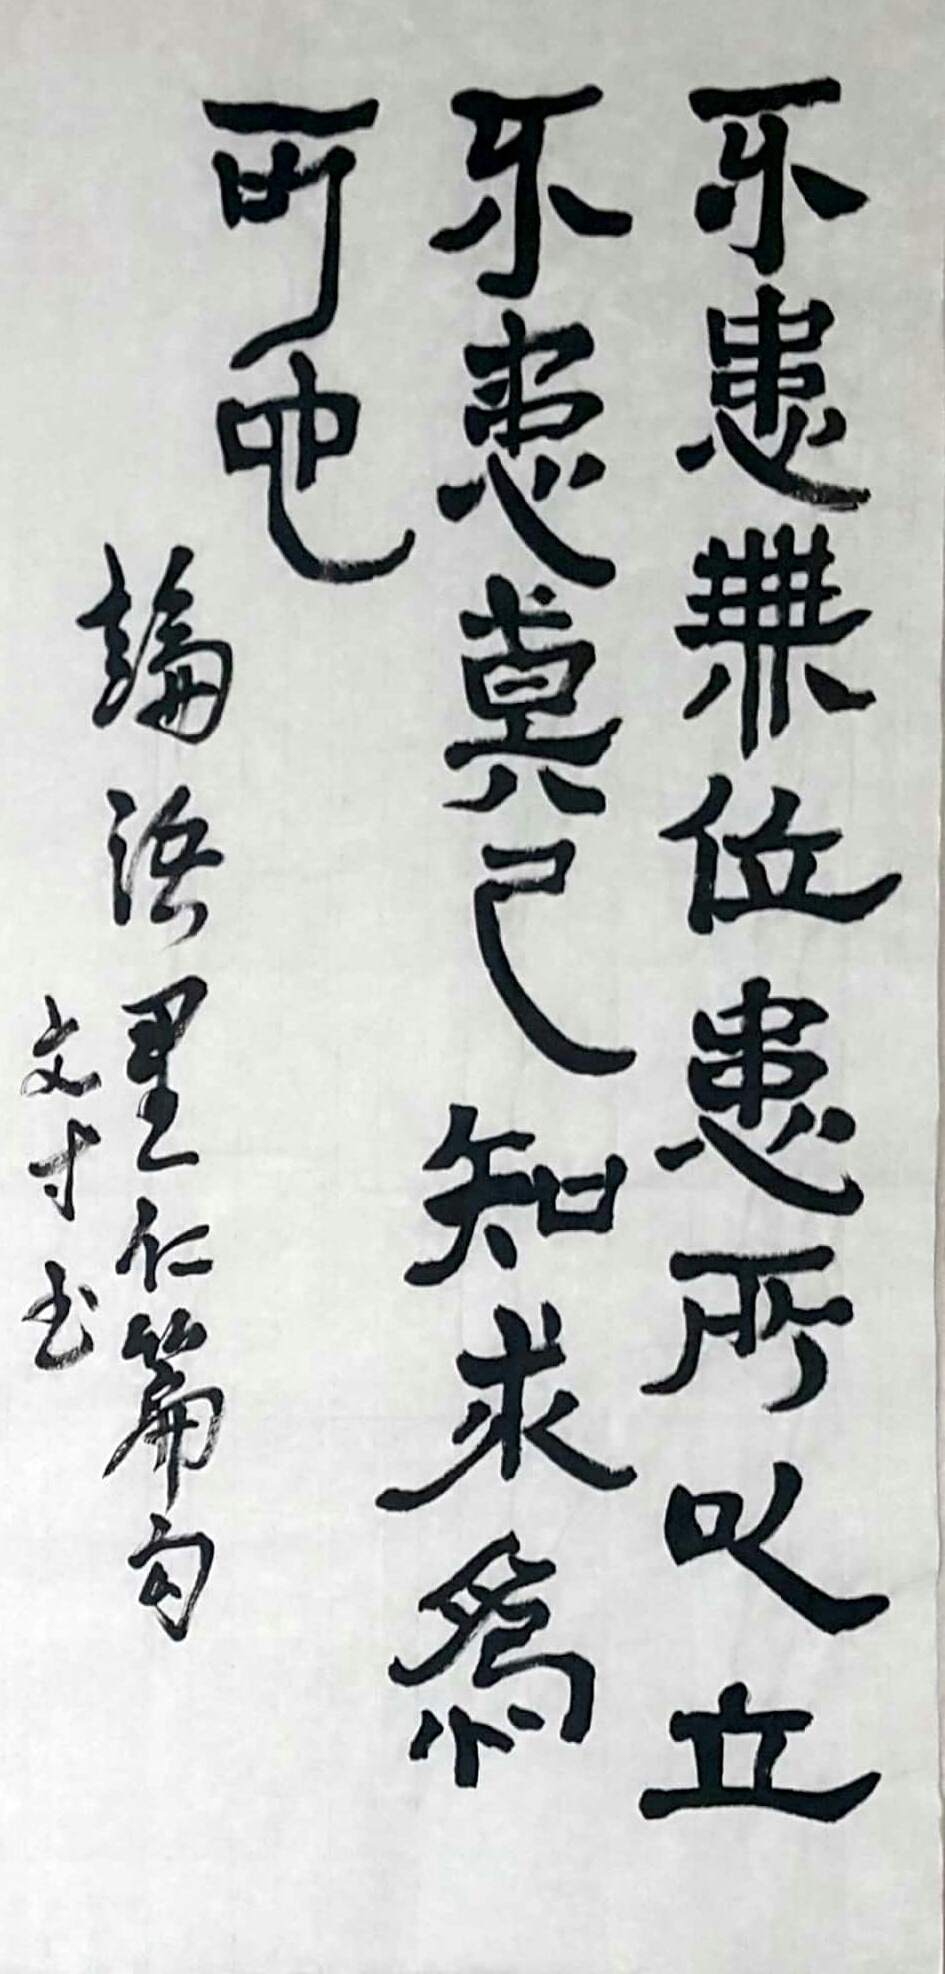 不患無位患所以立
不患莫己知求為
可也
論語里仁篇句
文寸书